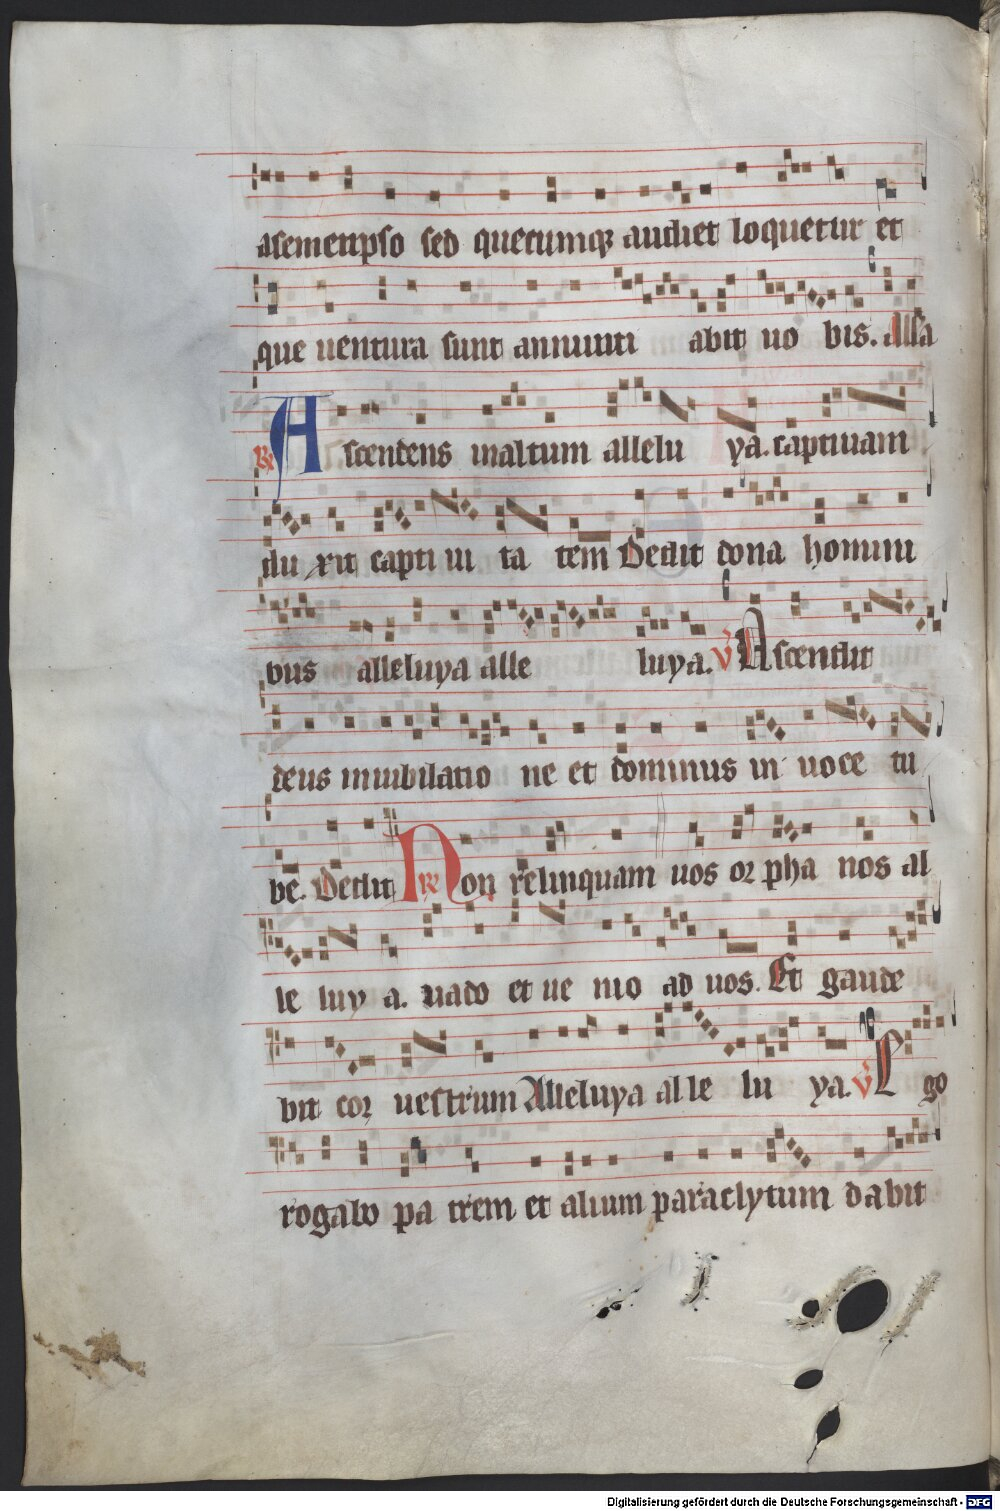 asemetipso sed quecumqꝫ audiet loquetur et
que uentura sunt annunti abit uo bis. All'a
℟ Ascendens inaltum allelu ya. captiuam
du xit capti ui ta tem Dedit dona homini
bus alleluya alle luya. ℣ Ascendit
deus iniubilatio ne et dominus in uoce tu
be. Dedit ℟ Non relinquam uos or pha nos al
le luy a. uado et ue nio ad uos. Et gaude
bit cor uestrum Alleluya al le lu ya. ℣ Ego
rogabo pa trem et alium paraclytum dabit
Digitalisierung gefördert durch die Deutsche Forschungsgemeinschaft - DFG